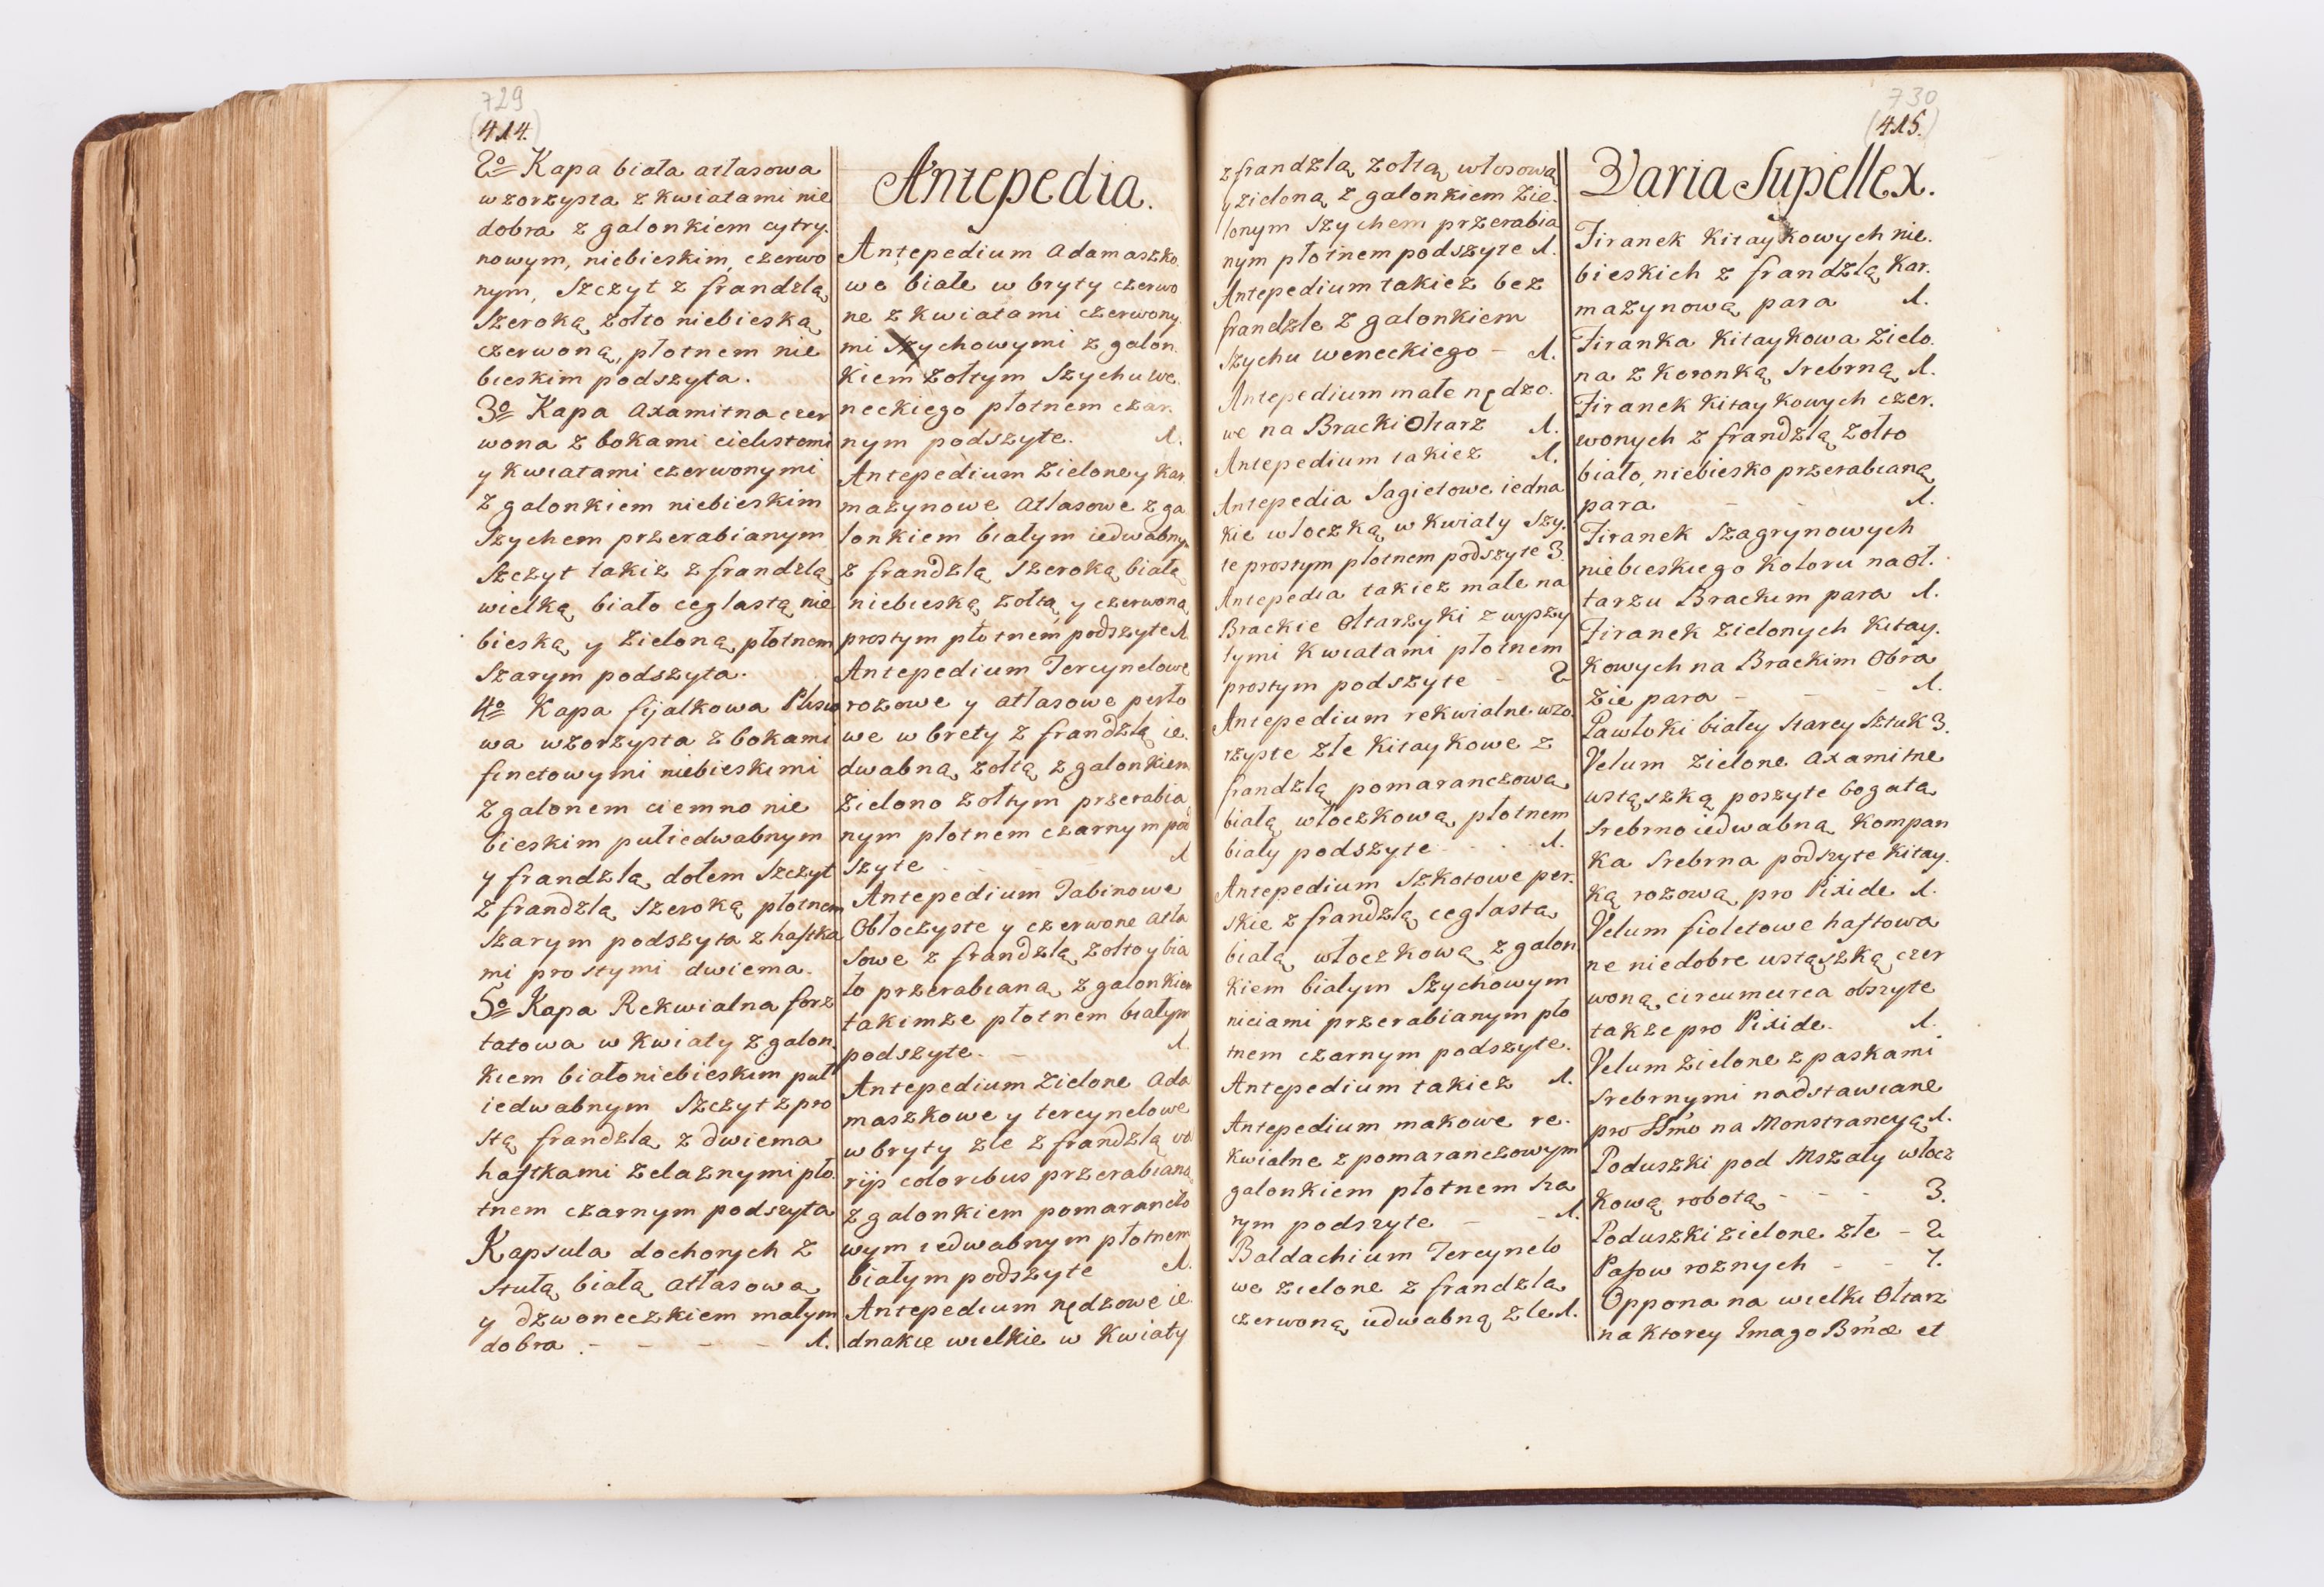 729
(414.)
2º Kapa biała atłasowa
wzorzysta z kwiatami nie
dobra z galonkiem cytry.
nowym, niebieskim, czerwo
nym, Szczyt z frandzlą
szeroką zołto niebieską
czerwoną, płotnem nie
bieskim podszyta.
3º Kapa Axamitna czer
wona z bokami cielistemi
y kwiatami czerwonymi
z galonkiem niebieskim
Szychem przerabianym
Szczyt takiż z frandzlą
wielką biało ceglastą nie
bieską y zieloną, płotnem
Szarym podszyta.
4º Kapa fijalkowa Plisio
wa wzorzysta z bokami
finetowymi niebieskimi
z galonem ciemno nie
bieskim puliedwabnym
y frandzlą dołem Szczyt
z frandzlą szeroką płotnem
Szarym podszyta z haftka
mi prostymi dwiema.
5º Kapa Rekwialna forz
tatowa w kwiaty z galon.
kiem białoniebieskim puł
iedwabnym Szczyt z pro
stą frandzlą z dwiema
haftkami zelaznymi pło.
tnem czarnym podszyta
Kapsula dochorych z
stułą białą atłasową
y dzwoneczkiem małym
dobra - - - - 1.
Antepedia.
Antepedium Adamaszko.
we białe w bryty czerwo
ne z kwiatami czerwony.
mi Szychowymi z galon.
kiem zołtym Szychu we.
neckiego płotnem czar.
nym podszyte. 1.
Antepedium zielone y kar.
mazynowe Atłasowe z ga
lonkiem białym iedwabnym
z frandzlą szeroką białą
niebieską zołtą y czerwoną
prostym płotnem podszyte 1.
Antepedium Tercynelowe
rozowe y atłasowe perło
we w brety z frandzlą ie.
dwabną zołtą z galonkiem
zielono zołtym przerabia
nym płotnem czarnym pod
szyte - 1
Antepedium Tabinowe
Obłoczyste y czerwone Atła
sowe z frandzlą zołto y bia
ło przerabianą z galonkiem
takimze płotnem białym
podszyte. - 1.
Antepedium zielone Ada
maszkowe y tercynelowe
w bryty złe z frandzlą va
rijs coloribus przerabianą
z galonkiem pomarancło
wym iedwabnym płotnem
białym podszyte 1.
Antepedium nędzowe ie
dnakie wielkie w kwiaty
730
(415.)
z frandzlą zołtą włosową
y zieloną z galonkiem zie.
lonym Szychem przerabia
nym płotnem podszyte 1.
Antepedium takiez bez
frandzle z galonkiem
Szychu weneckiego - 1.
Antepedium małe nędzo.
we na Bracki Ołtarz 1.
Antepedium takiez 1.
Antepedia Sagietowe iedna
kie włoczką w kwiaty szy.
te prostym płotnem podszyte 3.
Antepedia takiez małe na
Brackie Ołtarzyki z wyszy
tymi kwiatami płotnem
prostym podszyte - 2
Antepedium rekwialne wzo.
rzyste złe kitaykowe z
frandzlą pomaranczową
białą włoczkową, płotnem
biały podszyte - 1.
Antepedium Szkotowe per.
skie z frandzlą ceglastą
białą włoczkową z galon
kiem białym Szychowym
niciami przerabianym pło
tnem czarnym podszyte.
Antepedium takiez 1.
Antepedium makowe re.
kwialne z pomaranczowym
galonkiem płotnem sta
rym podszyte - - 1.
Baldachium Tercynelo
we zielone z frandzlą
czerwoną iedwabną złe 1.
Varia Supellex.
Firanek Kitaykowych nie.
bieskich z frandzlą kar.
mazynową para 1.
Firanka Kitaykowa zielo.
na z koronką Srebrną 1.
Firanek Kitaykowych czer.
wonych z frandzlą zołto
biało, niebiesko przerabianą
para - - 1.
Firanek Szagrynowych
niebieskiego koloru na Oł.
tarzu Brackim para 1.
Firanek zielonych Kitay.
kowych na Brackim Obra
zie para - - - 1.
Pawłoki białey starey Sztuk 3.
Velum zielone Axamitne
wstąszką poszyte bogatą
srebrno iedwabną Kompan
ka srebrna podszyte kitay.
ką rozową pro Pixide 1.
Velum fioletowe haftowa
ne niedobre wstąszką czer
woną circumcirca obszyte
także pro Pixide. 1.
Velum zielone z paskami
Srebrnymi nadstawiane
pro SSmo na Monstrancyą 1.
Poduszki pod Mszały włocz
kową robotą - - - 3.
Poduszki zielone złe - 2
Pasow roznych - - 7.
Oppona na wielki Ołtarz
na ktorey Imago Bmæ et